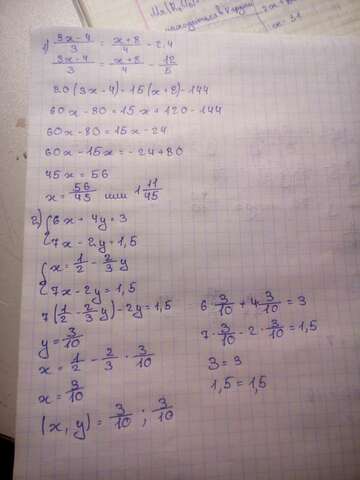 1) (3x-4)/3 = (x+8)/4 - 2,4
(3x-4)/3 = (x+8)/4 - 12/5
20(3x-4)=15(x+8)-144
60x-80=15x+120-144
60x-80=15x-24
60x-15x=-24+80
45x=56
x=56/45 или 1 11/45
2) {6x+4y=3
{7x-2y=1,5
{x=1/2-2/3y
{7x-2y=1,5
7(1/2-2/3y)-2y=1,5
y=3/10
x=1/2-2/3·3/10
x=3/10
(x,y)=3/10;3/10
6·3/10+4·3/10=3
7·3/10-2·3/10=1,5
3=3
1,5=1,5